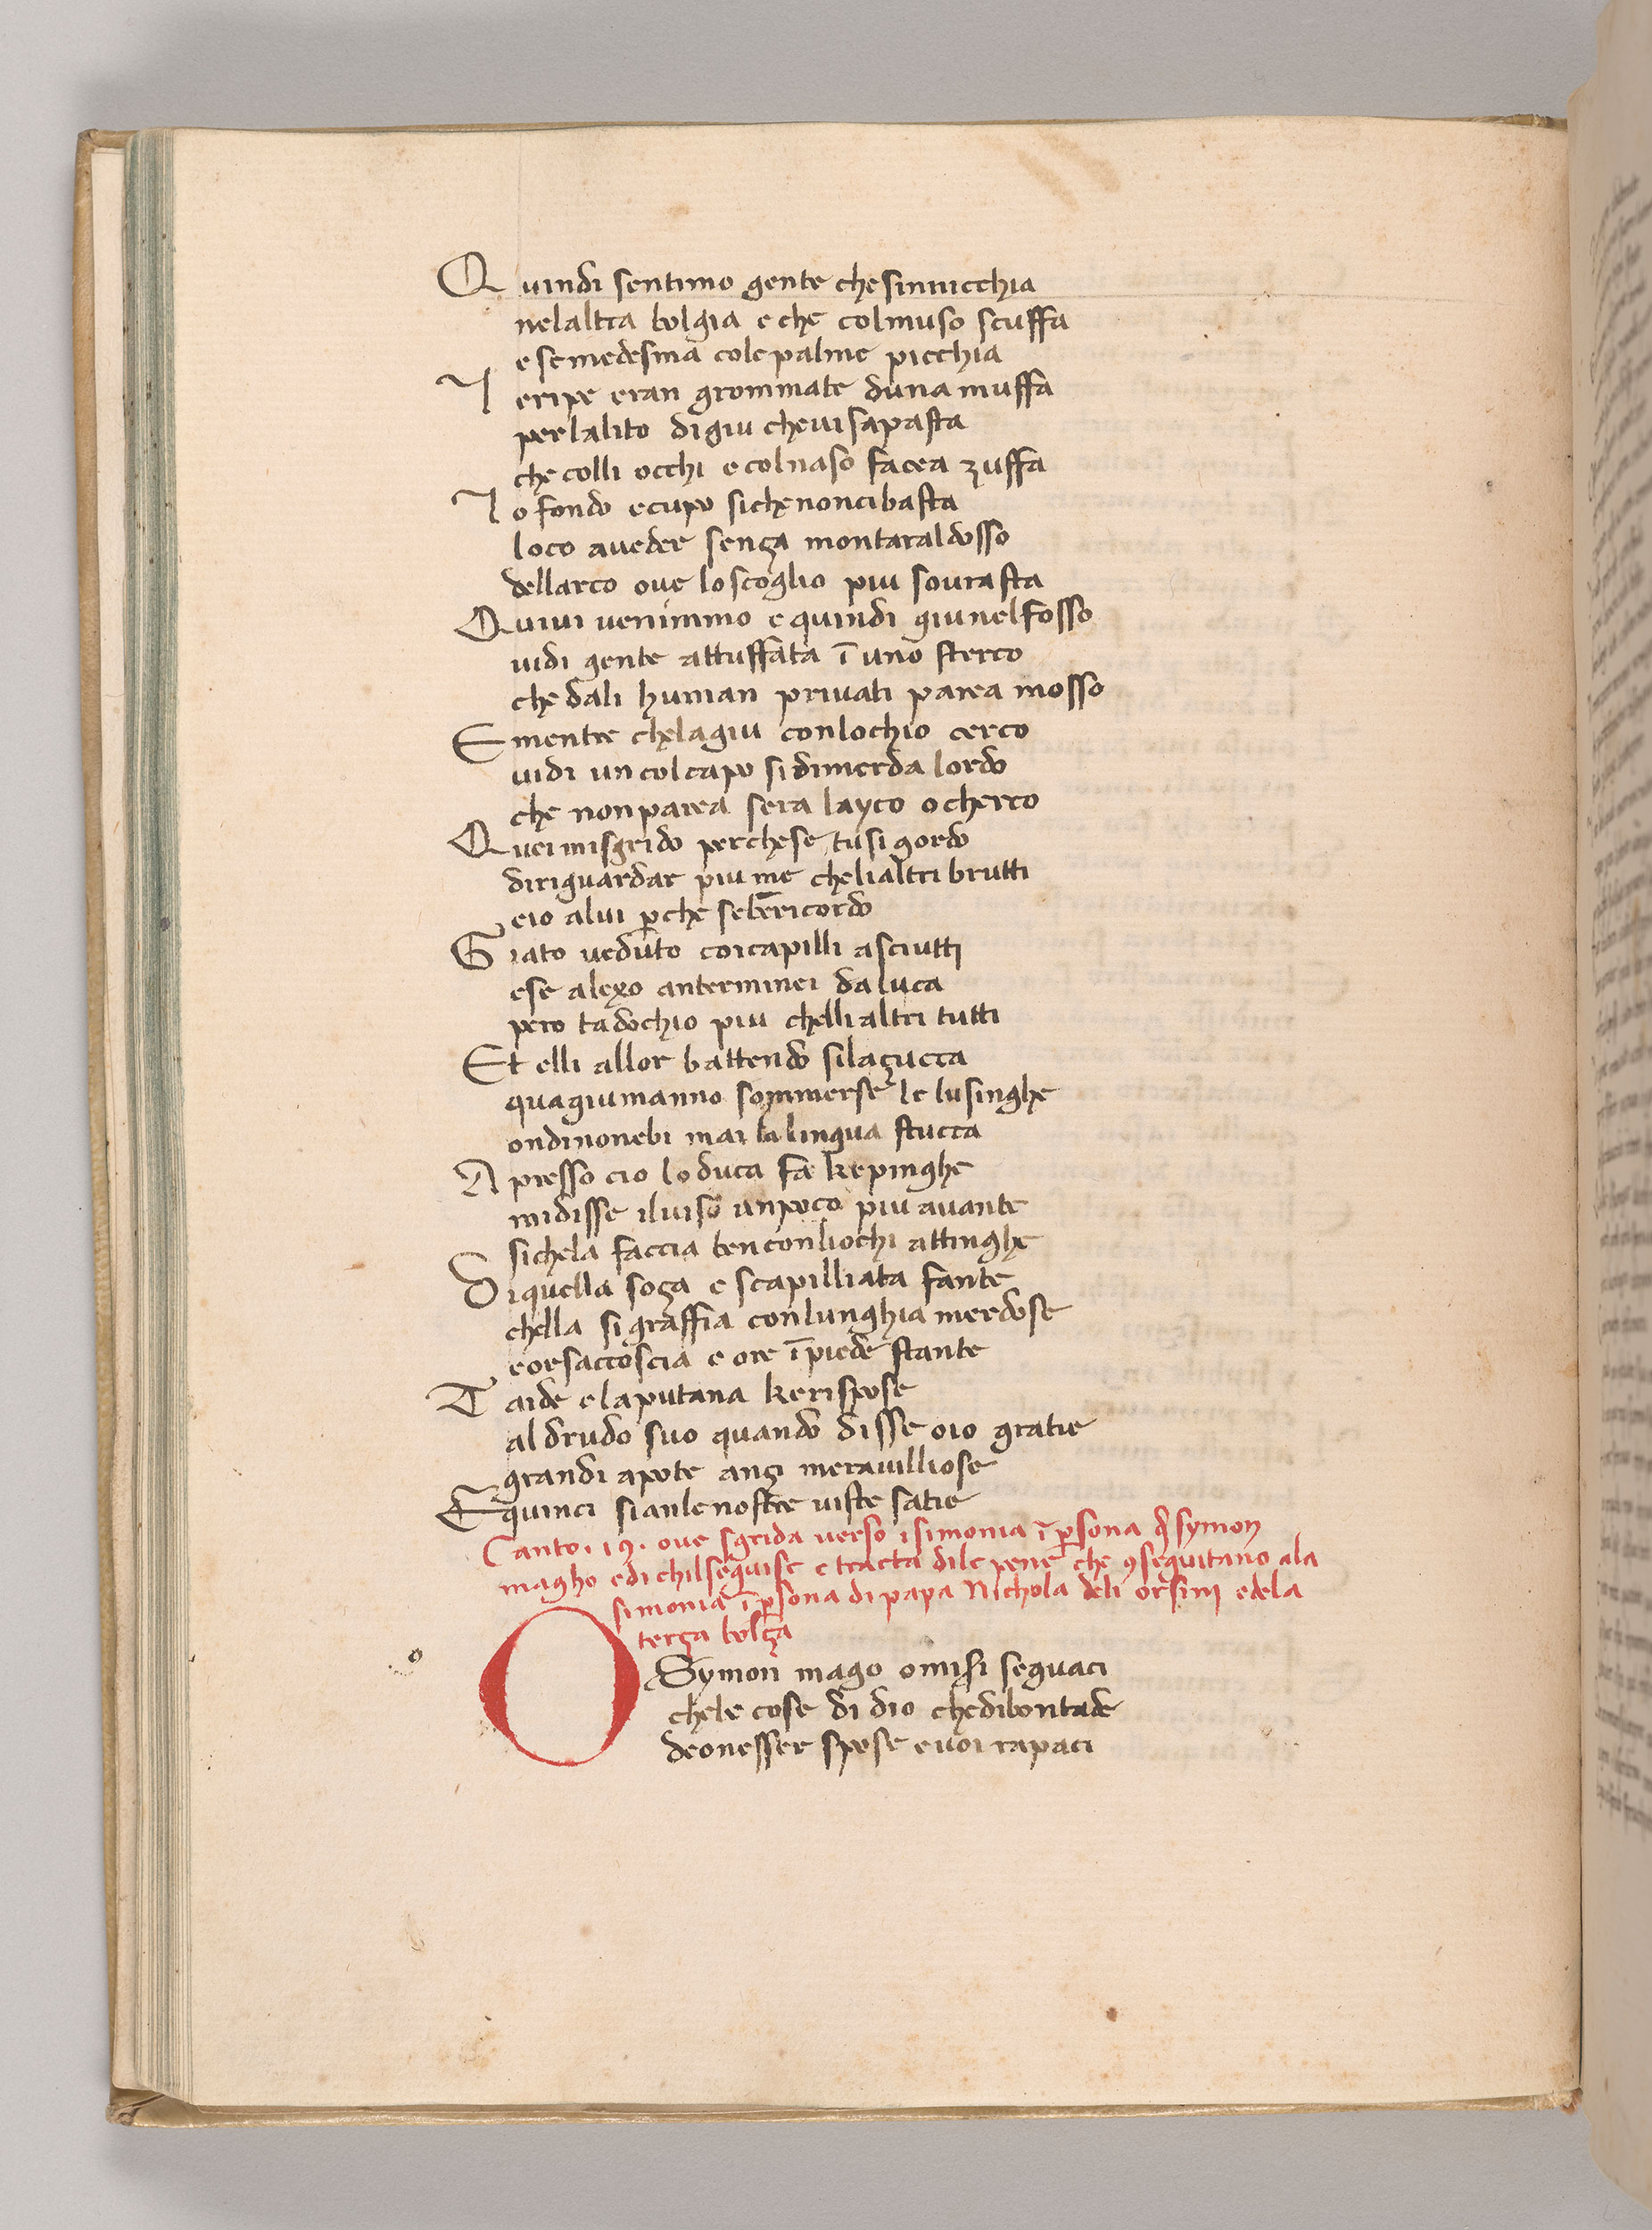 Quindi sentimo gente che sinnicchia
nelaltra bolgia e che colmuso scuffa
e semedesma cole palme picchia
Leripe eran grommate duna muffa
perlalito digiu chevi sapasta
che colli occhi e colnaso facea zuffa
Lo fondo e cupo siche noncibasta
loco aveder senza montaraldosso
dellarco ove loscoglio piu sovrasta
Quivi venimmo e quindi giunelfosso
vidi gente attuffata ī uno sterco
che dali human privati parea mosso
E mentre chelagiu conlochio cerco
vidi un colcapo sidimerda lordo
che nonparea sera layco o cherco
Quei misgrido perchese tusi gordo
diriguardar piu me chelialtri brutti
eio alui p̄che seb̄ricordo
Giato veduto coicapilli asciutti
ese alexo anterminei da luca
pero tadochio piu chelli altri tutti
Et elli allor battendo silazucca
quagiumanno sommerse le lusinghe
ondinonebi mai la lingua stucca
Apresso cio lo duca fa ke pinghe
midisse ilviso unpoco piu avante
sichela faccia benconliochi attinghe
Di quella soza e scapilliata fante
chella si graffia conlunghia merdose
eorsaccoscia e ore ī piede stante
Taide e laputana kerispose
al drudo suo quando disse oio gratie
grandi apote anzi meravilliose
E quinci sianlenostre viste satie
Canto. 19. ove sgrida verso isimonia ī p̄sona d̄ symon
magho edi chilseguise e tracta dile pene che 9seguitano ala
simonia ī p̄sona di papa Nichola deli orsini edela
terza bolza
O Symon mago omisri seguaci
chele cose di dio chedibontade
deonesser spose evoi rapaci
o